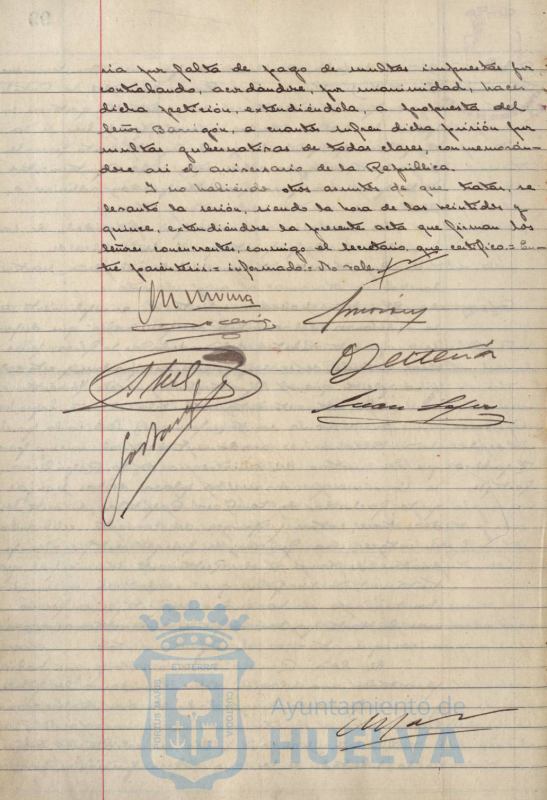 cia por falta de pago de multas impuestas por
contrabando, acordándose, por unanimidad, hacer
dicha petición, extendiéndola, a propuesta del
Señor Barrigón, a cuantos sufren dicha prisión por
multas gubernativas de todas clases, conmemorán-
dose así el aniversario de la República.
Y no habiendo otros asuntos de que tratar, se
levantó la sesión, siendo la hora de las veintidos y
quince, extendiéndose la presente acta que firman los
Señores concurrentes, conmigo el Secretario, que certifico.= En-
tre paréntesis.= informado.= No vale.
Juan
ENTERRÆ
PORTUS MARIS
CUSTODIA
Ayuntamiento de
HUELVA